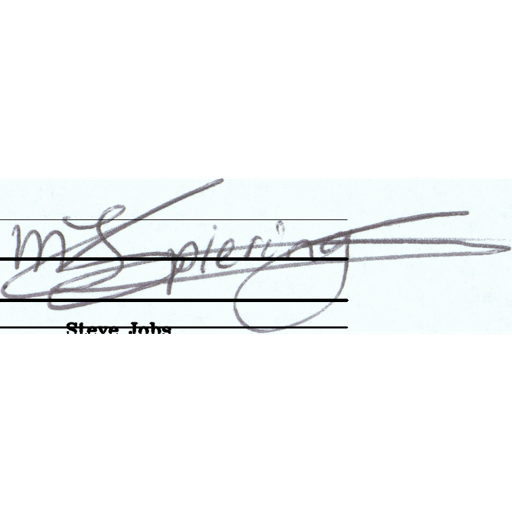 MSpiering
Steve Jobs